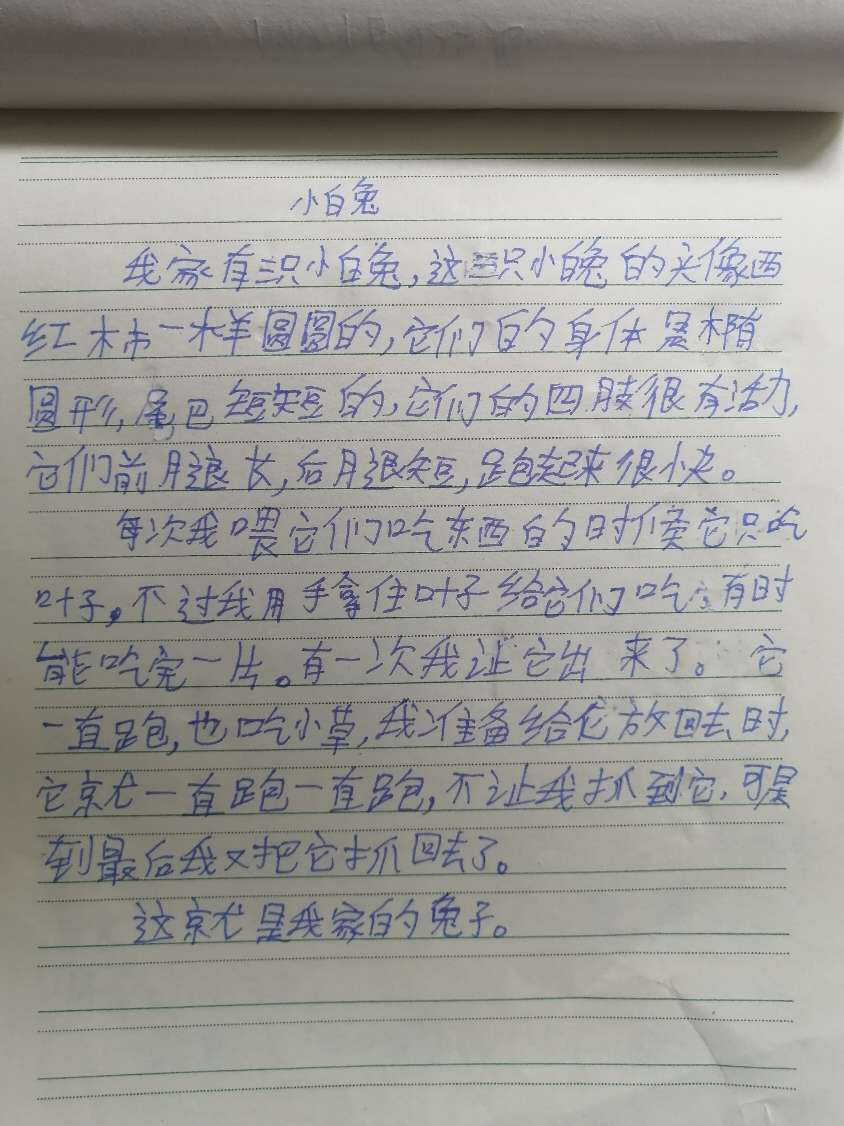 小白兔
我家有三只小白兔,这三只小白兔的头像西
红柿一样圆圆的,它们的身体是椭
圆形,尾巴短短的,它们的四肢很有活力,
它们前腿长,后腿短,跑起来很快。
每次我喂它们吃东西的时候它只吃
叶子,不过我用手拿住叶子给它们吃,有时
能吃完一片。有一次我让它出来了。它
一直跑,也吃小草,我准备给它放回去时,
它就一直跑一直跑,不让我抓到它,可是
到最后我又把它抓回去了。
这就是我家的兔子。